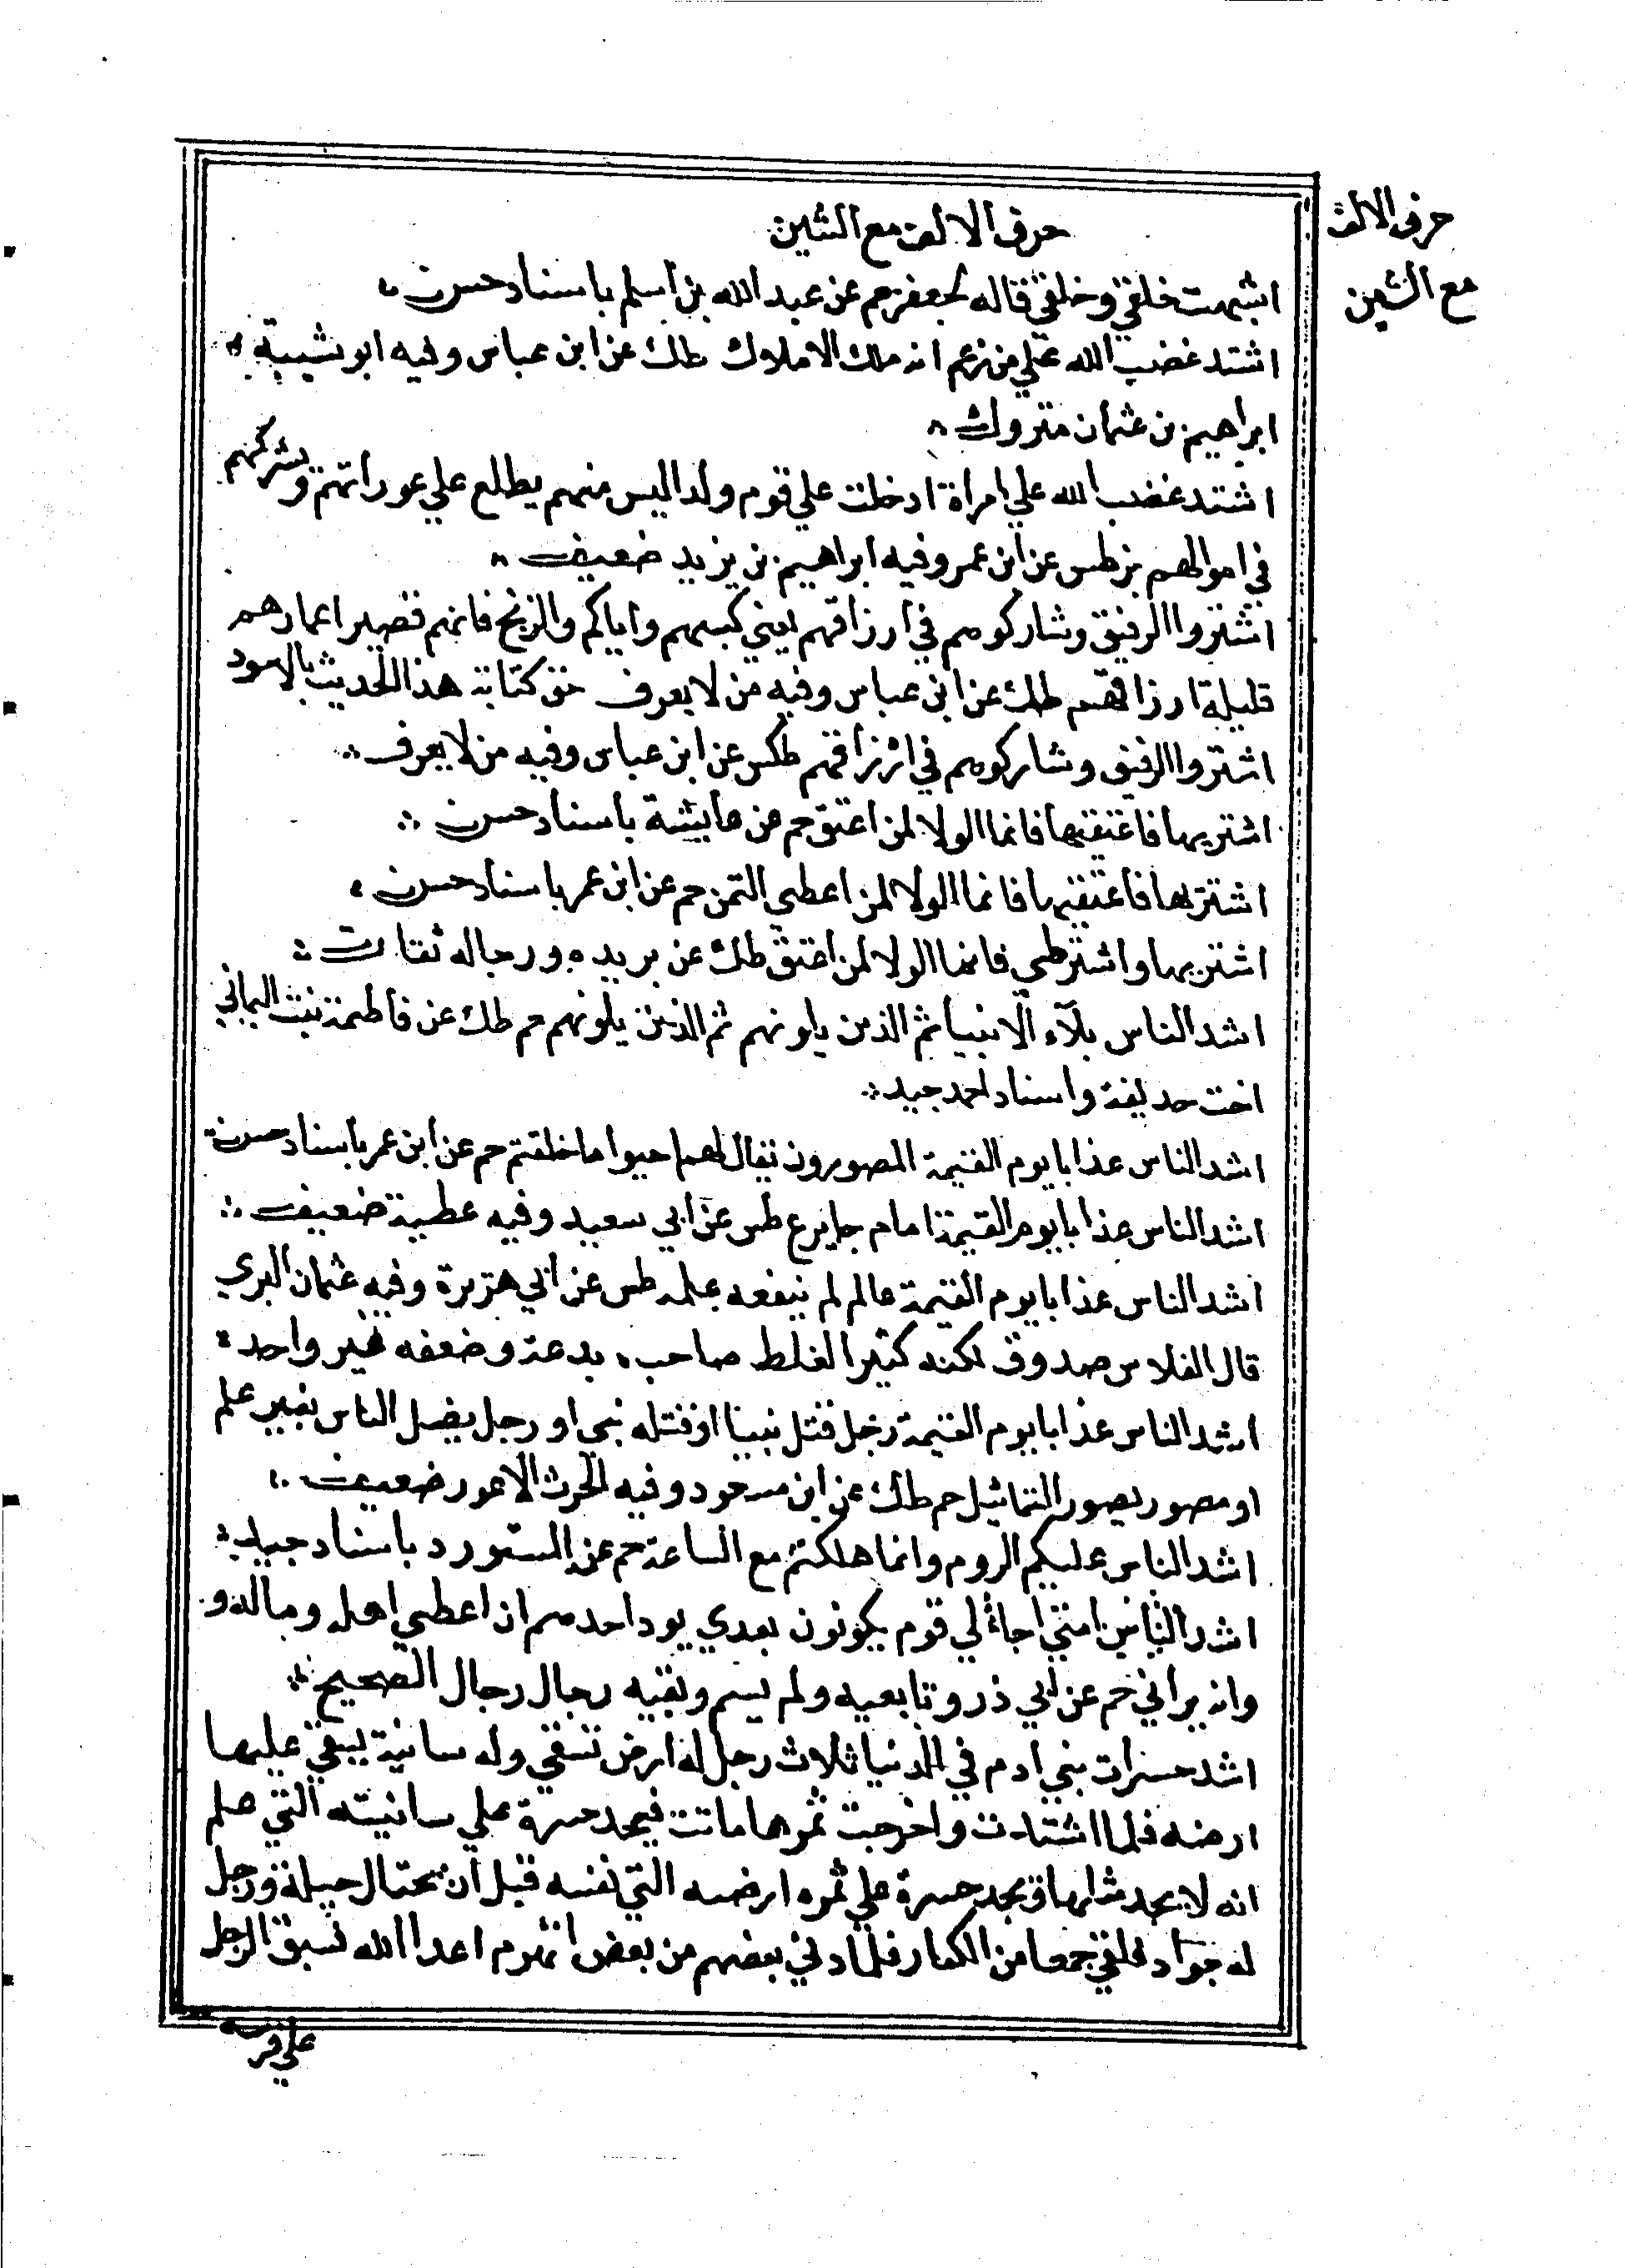 حرف الالف
مع الشين
حرف الالف مع الشين
اشبهت خلقي وخلقي قاله لجعفر حم عن عبد الله بن اسلم باسناد حسن
اشتد غضب الله علي من زعم انه ملك الاملاك طك عن ابن عباس وفيه ابو شيبة
ابراهيم بن عثمان متروك
اشتد غضب الله علي امراة ادخلت علي قوم ولدا ليس منهم يطلع علي عوراتهم ويشركهم
في اموالهم بز طس عن ابن عمر وفيه ابراهيم بن يزيد ضعيف
اشتروا الرقيق وشاركوهم في ارزاقهم يعني كسبهم واياكم والزنج فانهم قصير اعمارهم
قليلة ارزاقهم طك عن ابن عباس وفيه من لا يعرف حق كتابة هذا الحديث بالاسود
اشتروا الرقيق وشاركوهم في ارزاقهم طكس عن ابن عباس وفيه من لا يعرف
اشتريها فاعتقيها فانما الولا لمن اعتق حم عن عايشة باسناد حسن
اشترها فاعتقها فانما الولا لمن اعطي الثمن حم عن ابن عمر باسناد حسن
اشتريها واشترطي فانما الولا لمن اعتق طك عن بريده ورجاله ثقات
اشد الناس بلآء الانبيا ثم الذين يلونهم ثم الذين يلونهم حم طك عن فاطمة بنت اليماني
اخت حديفة واسناد احمد جيد
اشد الناس عذابا يوم القيمة المصورون يقال لهم احيوا ما خلقتم حم عن ابن عمر باسناد حسن
اشد الناس عذابا يوم القيمة امام جاير ع طس عن ابي سعيد وفيه عطية ضعيف
اشد الناس عذابا يوم القيمة عالم لم ينفعه علمه طس عن ابي هريرة وفيه عثمان البري
قال الفلاس صدوق لكنه كثير الغلط صاحب بدعة وضعفه غير واحد
اشد الناس عذابا يوم القيمة رجل قتل نبينا او قتله نبي او رجل يضل الناس بغير علم
او مصور يصور التماثيل حم طك عن ابن مسعود وفيه الحرث الاعور ضعيف
اشد الناس عليكم الروم وانما هلكتم مع الساعة حم عن المستورد باسناد جيد
اشد الناس امتي حبا لي قوم يكونون بعدي يود احدهم ان اعطي اهله وماله و
وانه يراني حم عن ابي ذر وتابعيه ولم يسم وبقيه رجال رجال الصحيح
اشد حسرات بني ادم في الدنيا ثلاث رجل له ارض تسقي وله سانية يسقي عليها
ارضه فلما اشتدت واخرجت ثمرها ماتت فيجد حسرة علي سانيته التي علم
انه لا يجد مثلها ويجد حسرة علي ثمره ارضه التي نفسه قبل ان يحتال حيلة ورجل
له جواد فلقي جمعا من الكفار فلما دني بعضهم من بعض انهزم اعدا الله فسبق الرجل
علي فرسه